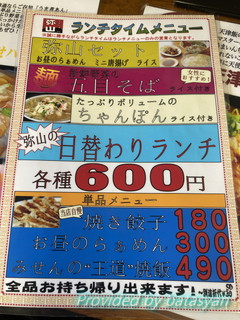 弥山
ランチタイムメニュー
弥山セット
お昼のらぁめん ミニ唐揚げ ライス
女性におすすめ!
五目そば
ライス付き
たっぷりボリュームの
ちゃんぽん ライス付き
弥山の
日替わりランチ
各種600円
単品メニュー
当店自慢
焼き餃子 180
お昼のらぁめん 300
みせんの"王道"焼飯 490
全品お持ち帰り出来ます!
Provided by Datasyan